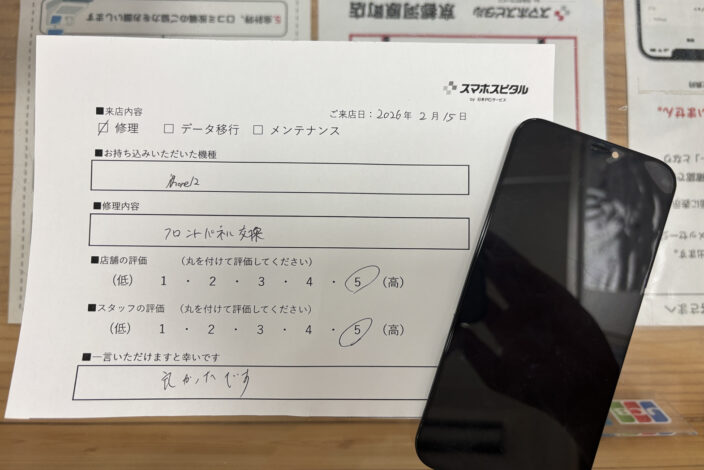 スマホスピタル
by 日本PCサービス
ご来店日：2026年 2月15日
■来店内容
☑ 修理 □ データ移行 □ メンテナンス
■お持ち込みいただいた機種
iPhone12
■修理内容
フロントパネル交換
■店舗の評価 (丸を付けて評価してください)
(低) 1 ・ 2 ・ 3 ・ 4 ・ 5 (高)
■スタッフの評価 (丸を付けて評価してください)
(低) 1 ・ 2 ・ 3 ・ 4 ・ 5 (高)
■一言いただけますと幸いです
良かったです
スマホスピタル 京都河原町店
JCB